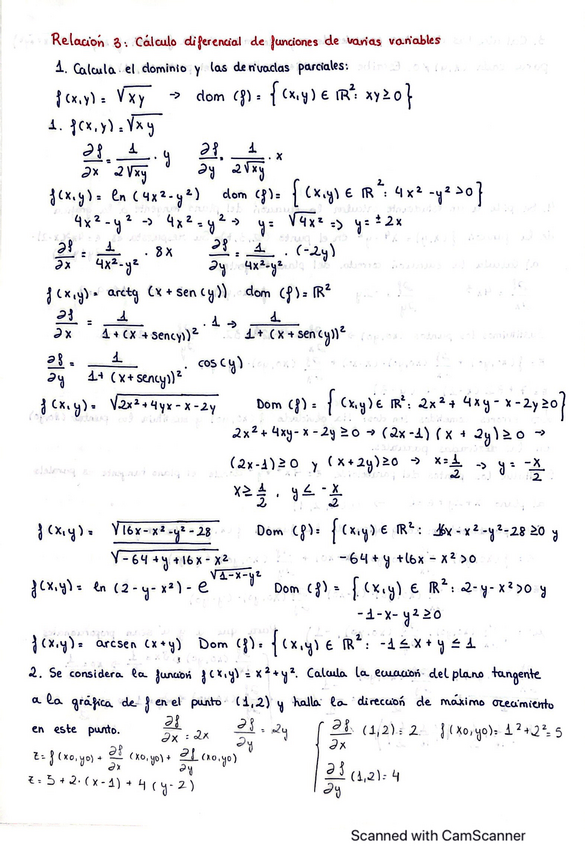 Relación 3: Cálculo diferencial de funciones de varias variables
1. Calcula el dominio y las derivadas parciales:
f(x,y) = √xy → dom (f) = { (x,y) ∈ ℝ²: xy ≥ 0 }
1. f(x,y) = √xy
∂f/∂x = 1/(2√xy) · y   ∂f/∂y = 1/(2√xy) · x
f(x,y) = ln (4x²-y²)   dom (f) = { (x,y) ∈ ℝ²: 4x²-y² > 0 }
4x²-y² → 4x² = y² → y = √4x² ⇒ y = ±2x
∂f/∂x = 1/(4x²-y²) · 8x   ∂f/∂y = 1/(4x²-y²) · (-2y)
f(x,y) = arctg (x + sen(y))   dom (f) = ℝ²
∂f/∂x = 1/(1+(x+sen(y))²) · 1 → 1/(1+(x+sen(y))²)
∂f/∂y = 1/(1+(x+sen(y))²) · cos(y)
f(x,y) = √(2x²+4yx-x-2y)   Dom (f) = { (x,y) ∈ ℝ²: 2x²+4xy-x-2y ≥ 0 }
2x²+4xy-x-2y ≥ 0 → (2x-1)(x+2y) ≥ 0 →
(2x-1) ≥ 0 y (x+2y) ≥ 0 → x = 1/2 → y = -x/2
x ≥ 1/2 , y ≤ -x/2
f(x,y) = √(16x-x²-y²-28) / √(-64+y+16x-x²)   Dom (f) = { (x,y) ∈ ℝ²: 16x-x²-y²-28 ≥ 0 y
-64+y+16x-x² > 0
f(x,y) = ln (2-y-x²) - e^√(1-x-y²)   Dom (f) = { (x,y) ∈ ℝ²: 2-y-x² > 0 y
-1-x-y² ≥ 0
f(x,y) = arcsen (x+y)   Dom (f) = { (x,y) ∈ ℝ²: -1 ≤ x+y ≤ 1
2. Se considera la función f(x,y) = x²+y². Calcula la ecuación del plano tangente
a la gráfica de f en el punto (1,2) y halla la dirección de máximo crecimiento
en este punto.   ∂f/∂x = 2x   ∂f/∂y = 2y   { ∂f/∂x (1,2) = 2   f(x0,y0) = 1²+2² = 5
z = f(x0,y0) + ∂f/∂x (x0,y0) + ∂f/∂y (x0,y0)
z = 5 + 2·(x-1) + 4(y-2)   ∂f/∂y (1,2) = 4
Scanned with CamScanner